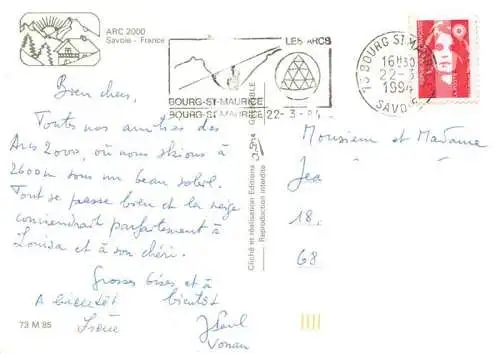 ARC 2000
Savoie - France
LES ARCS
BOURG-ST-MAURICE
BOURG-ST-MAURICE
22-3-94
73 BOURG ST-MAURICE
16H30
22-3
1994
SAVOIE
Bien chers,
Toutes nos amitiés des
Arcs 2000, où nous skions à
2600m sous un beau soleil.
Tout se passe bien et la neige
conviendrait parfaitement à
Louisa et à son chéri.
Grosses bises et à
bientôt
A bientôt
Irène
Paul
Yohan
73 M 85
Cliché et réalisation Editions GRENOBLE
Reproduction interdite
Monsieur et Madame
Jea
18.
68